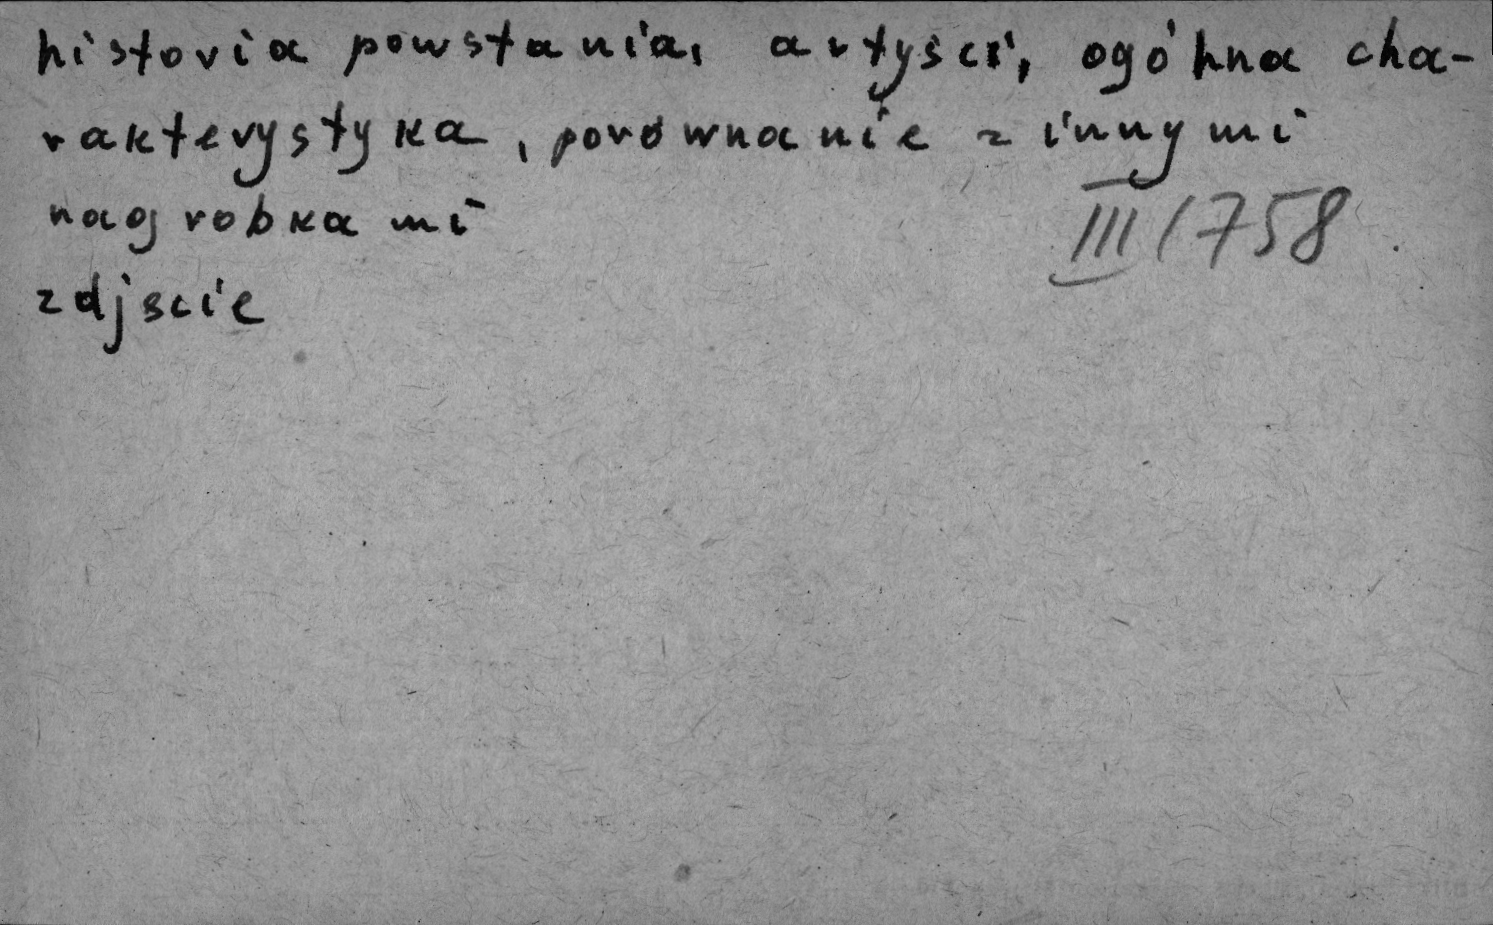 historia powstania, artyści, ogólna cha-
rakterystyka, porównanie z innymi
nagrobkami
III/758
zdjscie